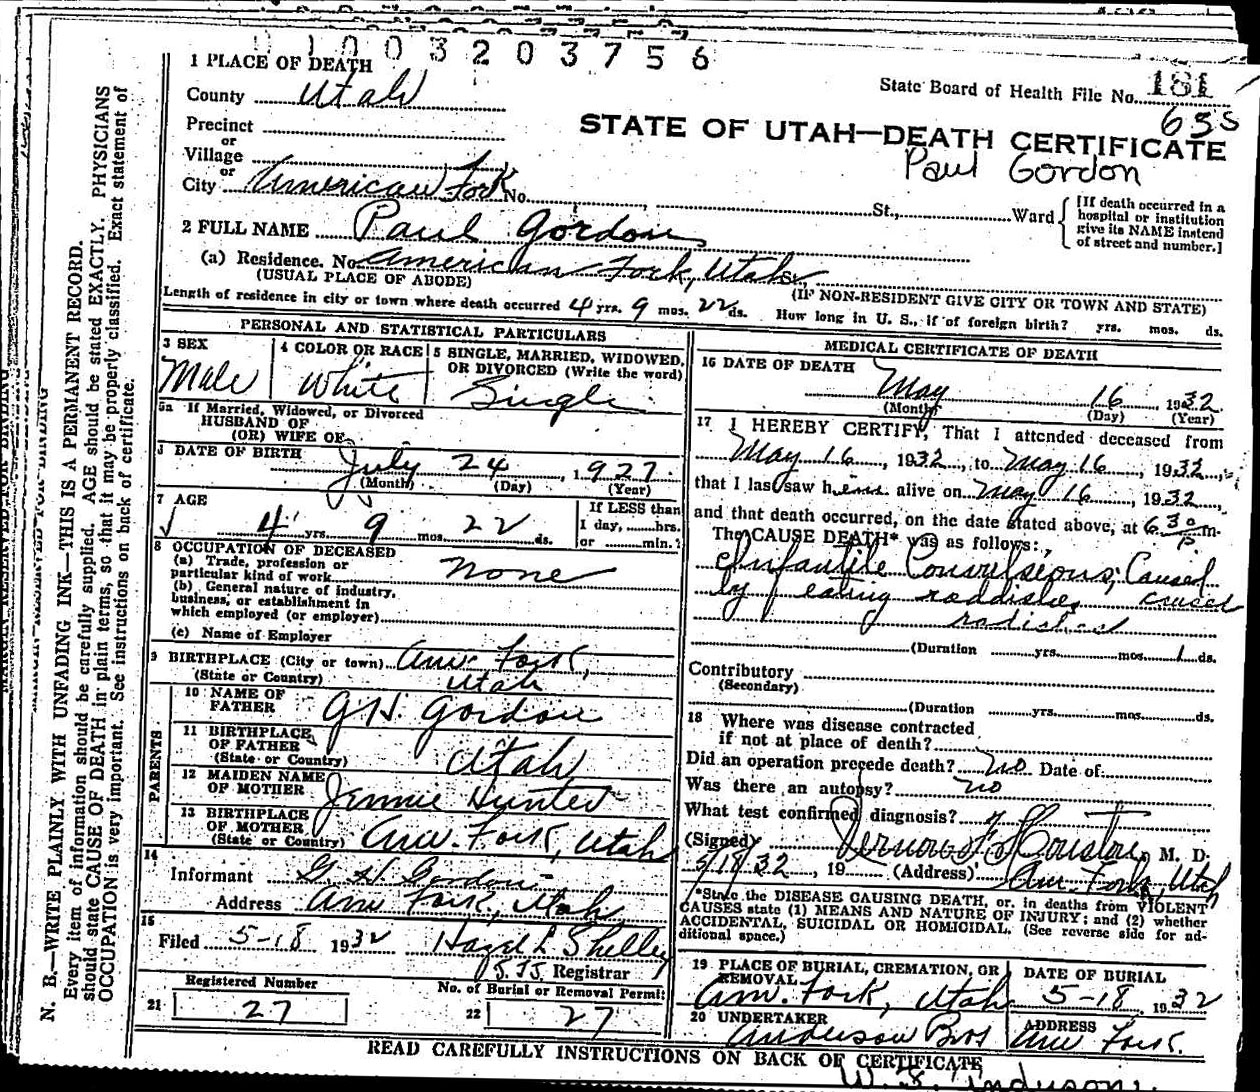 0 1 0 0 3 2 0 3 7 5 6
1 PLACE OF DEATH
State Board of Health File No. 181
County Utah
635
Precinct
or
STATE OF UTAH—DEATH CERTIFICATE
Village
Paul Gordon
or
City American Fork No. St., Ward
[If death occurred in a
hospital or institution
give its NAME instead
of street and number.]
2 FULL NAME Paul Gordon
(a) Residence. No. American Fork, Utah St.,
(USUAL PLACE OF ABODE)
(IF NON-RESIDENT GIVE CITY OR TOWN AND STATE)
Length of residence in city or town where death occurred 4 yrs. 9 mos. 22 ds. How long in U. S., if of foreign birth? yrs. mos. ds.
PERSONAL AND STATISTICAL PARTICULARS
3 SEX
Male
4 COLOR OR RACE
White
5 SINGLE, MARRIED, WIDOWED,
OR DIVORCED (Write the word)
Single
5a If Married, Widowed, or Divorced
HUSBAND OF
(OR) WIFE OF
DATE OF BIRTH July 24, 1927
(Month) (Day) (Year)
7 AGE
4 yrs. 9 mos. 22 ds.
If LESS than
1 day, hrs.
or min.?
8 OCCUPATION OF DECEASED
(a) Trade, profession or
particular kind of work none
(b) General nature of industry,
business, or establishment in
which employed (or employer)
(c) Name of Employer
9 BIRTHPLACE (City or town) Am. Fork,
(State or Country) Utah
PARENTS
10 NAME OF
FATHER G H. Gordon
11 BIRTHPLACE
OF FATHER
(State or Country) Utah
12 MAIDEN NAME
OF MOTHER Jennie Hunter
13 BIRTHPLACE
OF MOTHER
(State or Country) Am. Fork, Utah
14
Informant G H Gordon
Address Am Fork, Utah
15
Filed 5-18 1932 Hazel L Shelley
Registrar
Registered Number
21 27
No. of Burial or Removal Permit
22 27
MEDICAL CERTIFICATE OF DEATH
16 DATE OF DEATH
May 16 1932
(Month) (Day) (Year)
17 I HEREBY CERTIFY, That I attended deceased from
May 16, 1932, to May 16, 1932,
that I last saw him alive on May 16, 1932
and that death occurred, on the date stated above, at 6 30 P m.
The CAUSE DEATH* was as follows:
Infantile Convulsions; Caused
by eating raddishes caused
radishes
(Duration yrs. mos. 1 ds.
Contributory
(Secondary)
(Duration yrs. mos. ds.
18 Where was disease contracted
if not at place of death?
Did an operation precede death? no Date of
Was there an autopsy? no
What test confirmed diagnosis?
(Signed) Vernon F Houston, M. D.
5/18/32, 19 (Address) Am. Fork, Utah
*State the DISEASE CAUSING DEATH, or, in deaths from VIOLENT
CAUSES state (1) MEANS AND NATURE OF INJURY; and (2) whether
ACCIDENTAL, SUICIDAL OR HOMICIDAL. (See reverse side for ad-
ditional space.)
19 PLACE OF BURIAL, CREMATION, OR
REMOVAL
Am. Fork, Utah
DATE OF BURIAL
5-18 1932
20 UNDERTAKER
Anderson Bros
ADDRESS
Am Fork.
READ CAREFULLY INSTRUCTIONS ON BACK OF CERTIFICATE
N. B.—WRITE PLAINLY WITH UNFADING INK—THIS IS A PERMANENT RECORD.
Every item of information should be carefully supplied. AGE should be stated EXACTLY. PHYSICIANS
should state CAUSE OF DEATH in plain terms, so that it may be properly classified. Exact statement of
OCCUPATION is very important. See instructions on back of certificate.